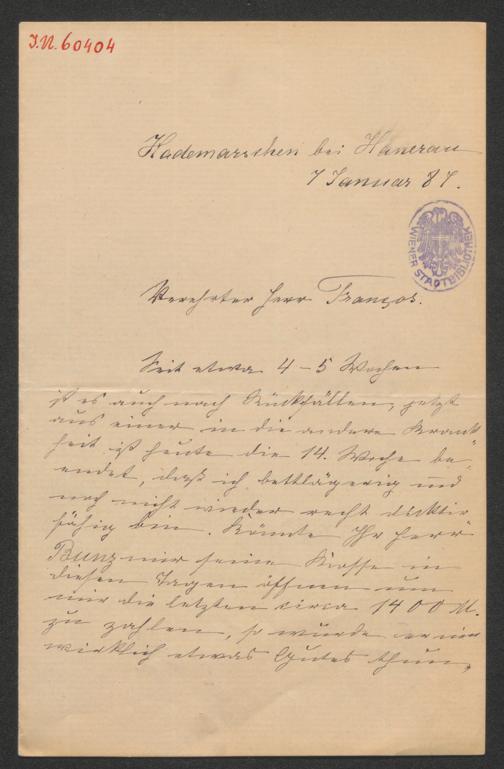 J.N. 60404
Hademarschen bei Hanerau
7 Januar 87.
WIENER STADTBIBLIOTHEK
Verehrter Herr Franzos.
Seit etwa 4-5 Wochen
ist es auch nach Rückfällen, jetzt
aus einer in die andere Krank
heit ist heute die 14. Woche be
endet, daß ich bettlägerig und
noch nicht wieder recht diktir
fähig bin. Könnte Ihr Herr
Bunz mir seine Kasse in
diesen Tagen öffnen um
mir die letzten circa 1400 M.
zu zahlen, so würde er mir
wirklich etwas Gutes thun,